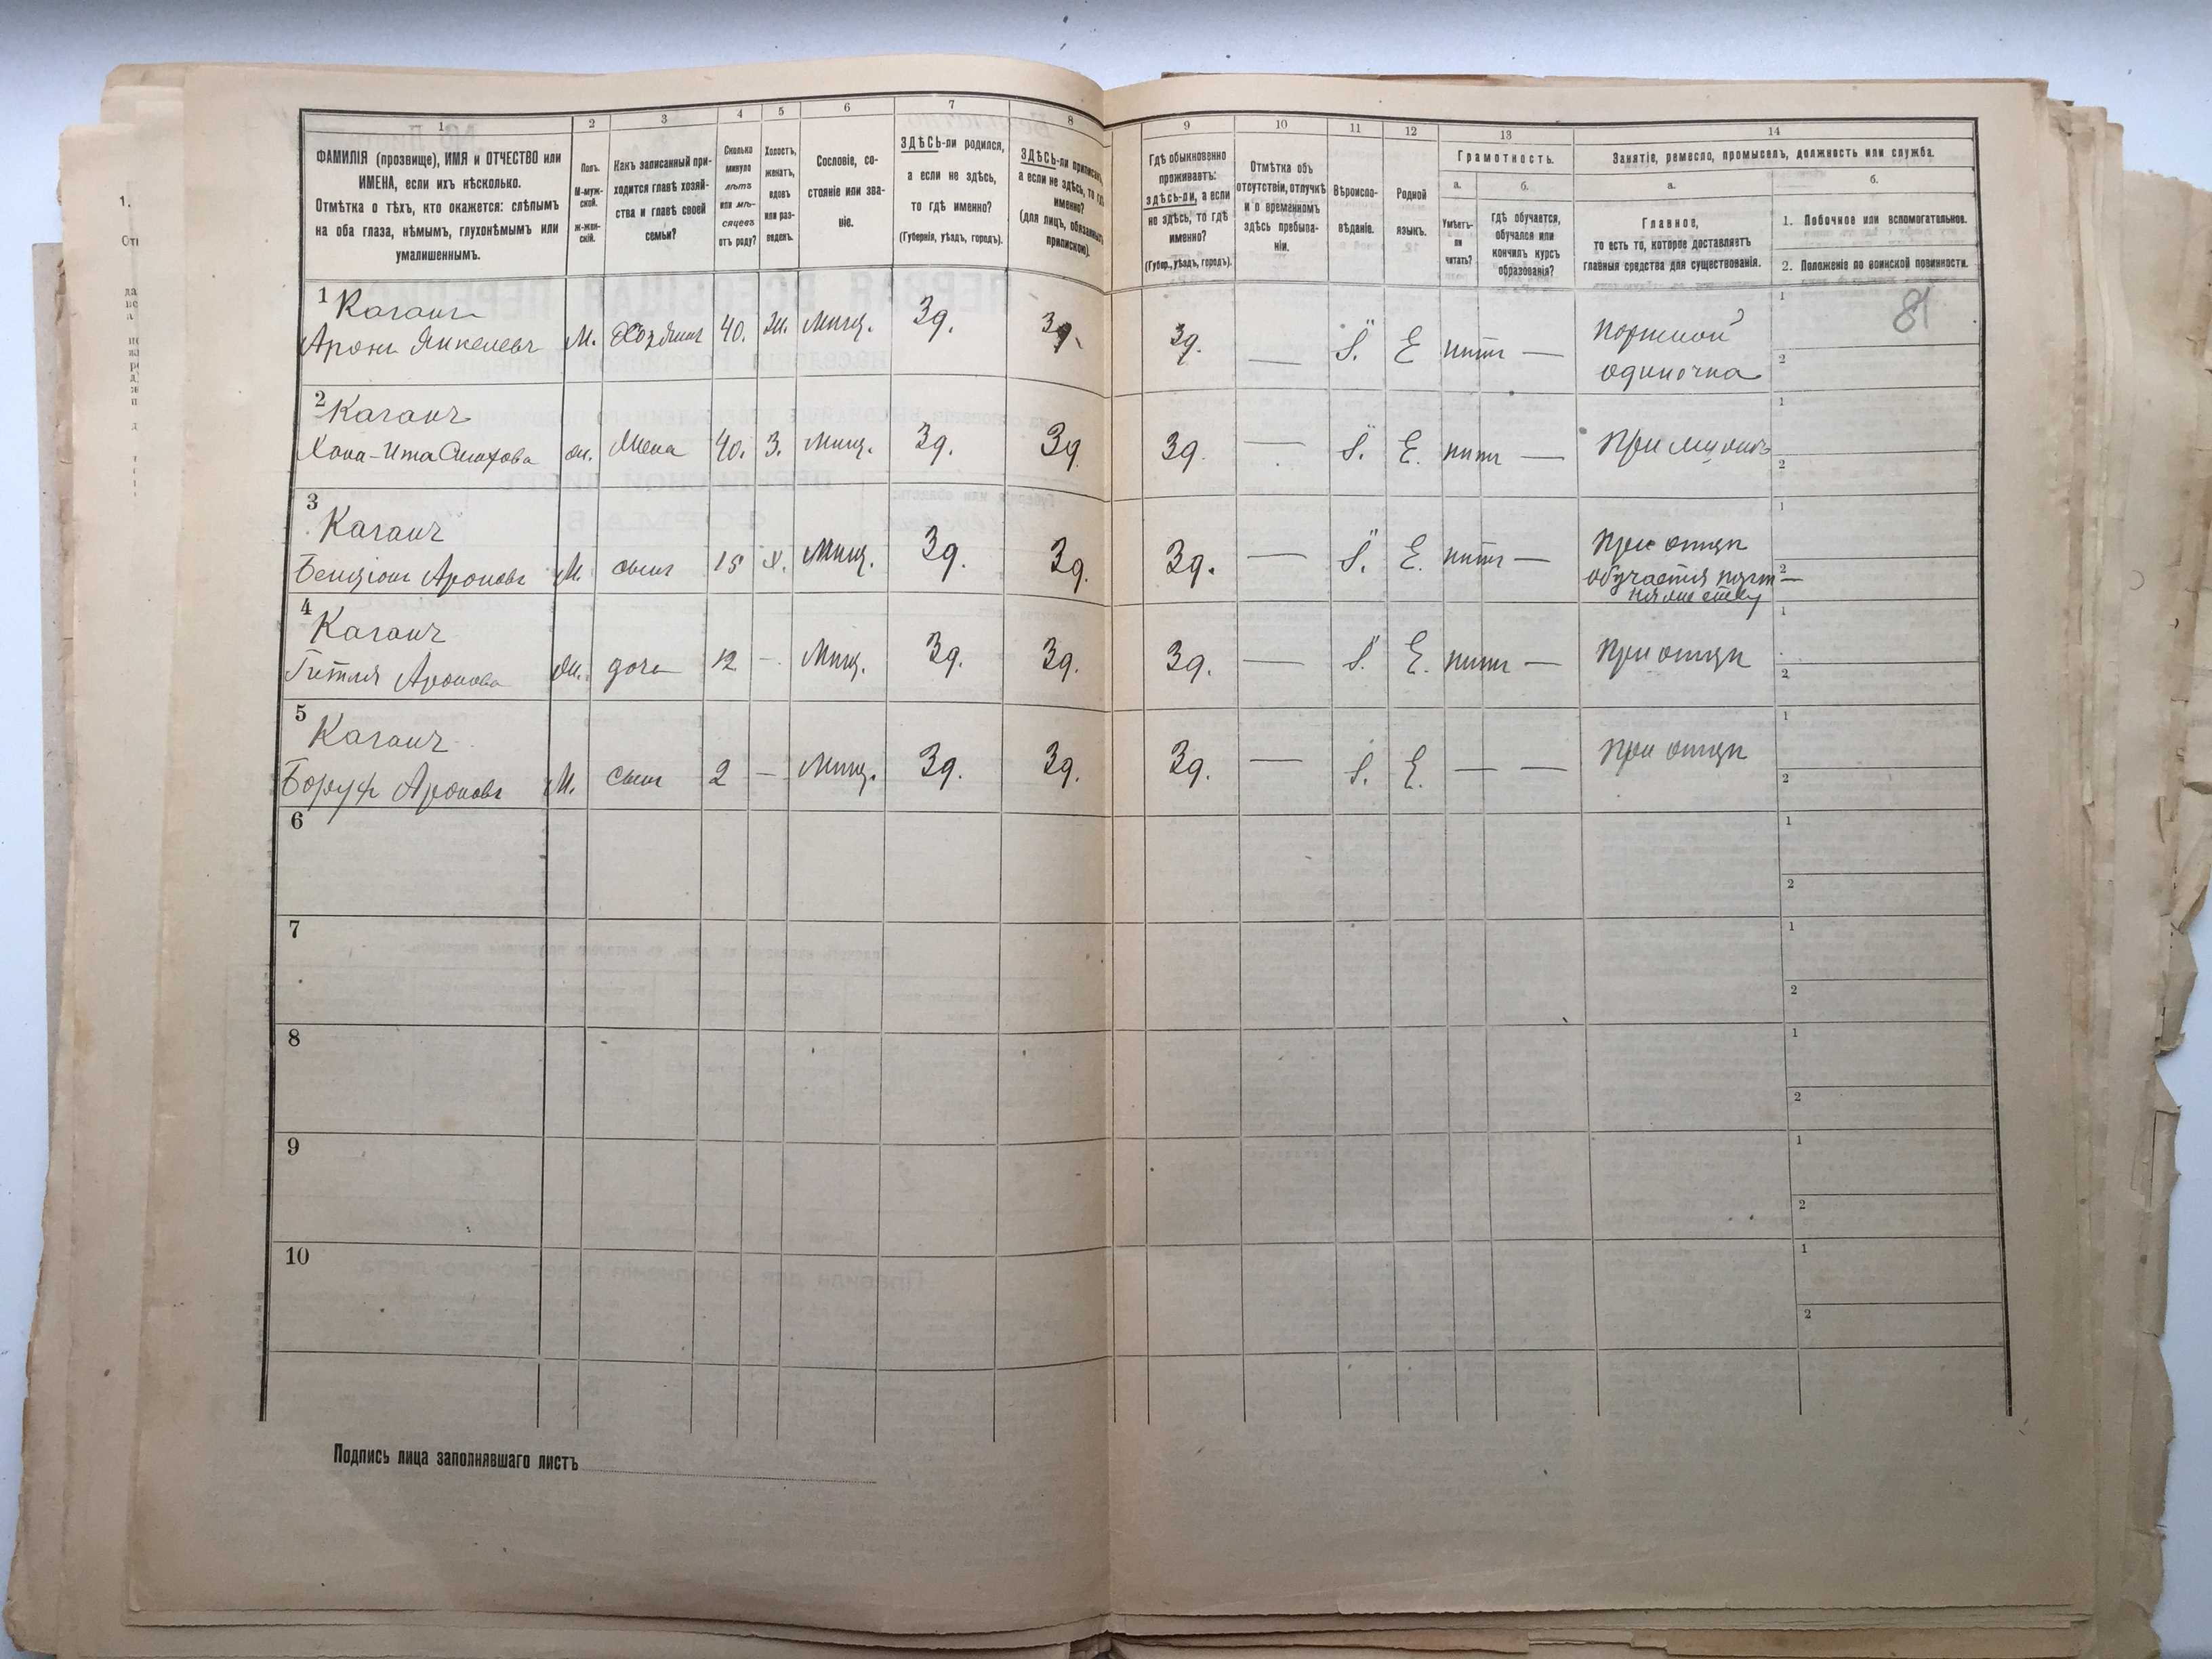 1
2
3
4
5
6
7
8
9
10
11
12
13
14
ФАМИЛІЯ (прозвище), ИМЯ и ОТЧЕСТВО или
ИМЕНА, если ихъ нѣсколько.
Отмѣтка о тѣхъ, кто окажется: слѣпымъ
на оба глаза, нѣмымъ, глухонѣмымъ или
умалишеннымъ.
Полъ.
М-муж-
ской.
ж-жен-
скій.
Какъ записанный при-
ходится главѣ хозяй-
ства и главѣ своей
семьи?
Сколько
минуло
лѣтъ
или мѣ-
сяцевъ
отъ роду?
Холостъ,
женатъ,
вдовъ
или раз-
веденъ.
Сословіе, со-
стояніе или зва-
ніе.
ЗДѢСЬ-ли родился,
а если не здѣсь,
то гдѣ именно?
(Губернія, уѣздъ, городъ).
ЗДѢСЬ-ли приписанъ,
а если не здѣсь, то гдѣ
именно?
(для лицъ, обязанныхъ
припискою).
Гдѣ обыкновенно
проживаетъ:
здѣсь-ли, а если
не здѣсь, то гдѣ
именно?
(Губер., уѣздъ, городъ).
Отмѣтка объ
отсутствіи, отлучкѣ
и о временномъ
здѣсь пребыва-
ніи.
Вѣроиспо-
вѣданіе.
Родной
языкъ.
Грамотность.
а.
Умѣетъ-
ли
читать?
б.
Гдѣ обучается,
обучался или
кончилъ курсъ
образованія?
Занятіе, ремесло, промыселъ, должность или служба.
а.
Главное,
то есть то, которое доставляетъ
главныя средства для существованія.
б.
1. Побочное или вспомогательное.
2. Положеніе по воинской повинности.
81
1 Каганъ
Аронъ Янкелевъ М. Хозяинъ 40. Ж. Мѣщ. Зд. Зд. Зд. — І. Е нитъ — Портной
одиночка
1
2
2 Каганъ
Хана-Ита Сморова ж. Жена 40. З. Мѣщ. Зд. Зд. Зд. — І. Е. нитъ — При мужѣ
1
2
3 Каганъ
Бенціонъ Ароновъ М. сынъ 15 Х. Мѣщ. Зд. Зд. Зд. — І. Е. нитъ — При отцѣ
обучается порт-
няжеству
1
2 —
4 Каганъ
Гитля Аронова Ж. дочь 12 — Мѣщ. Зд. Зд. Зд. — І. Е. нитъ — При отцѣ
1
2
5 Каганъ
Борухъ Ароновъ М. сынъ 2 — Мѣщ. Зд. Зд. Зд. — І. Е. — — При отцѣ
1
2
6
1
2
7
1
2
8
1
2
9
1
2
10
1
2
Подпись лица заполнявшаго листъ